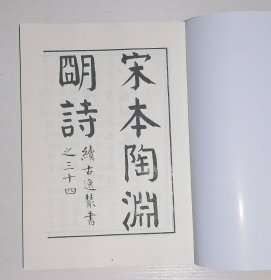 宋本陶淵
朙詩
續古逸叢書
之三十四